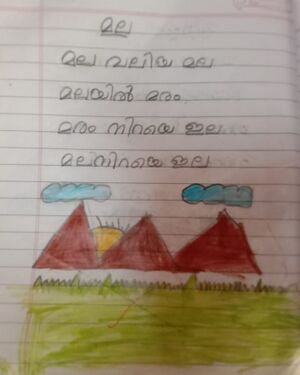 മല
മല വലിയ മല
മലയിൽ മരം
മരം നിറയെ ഇല
മലനിറയെ ഇല